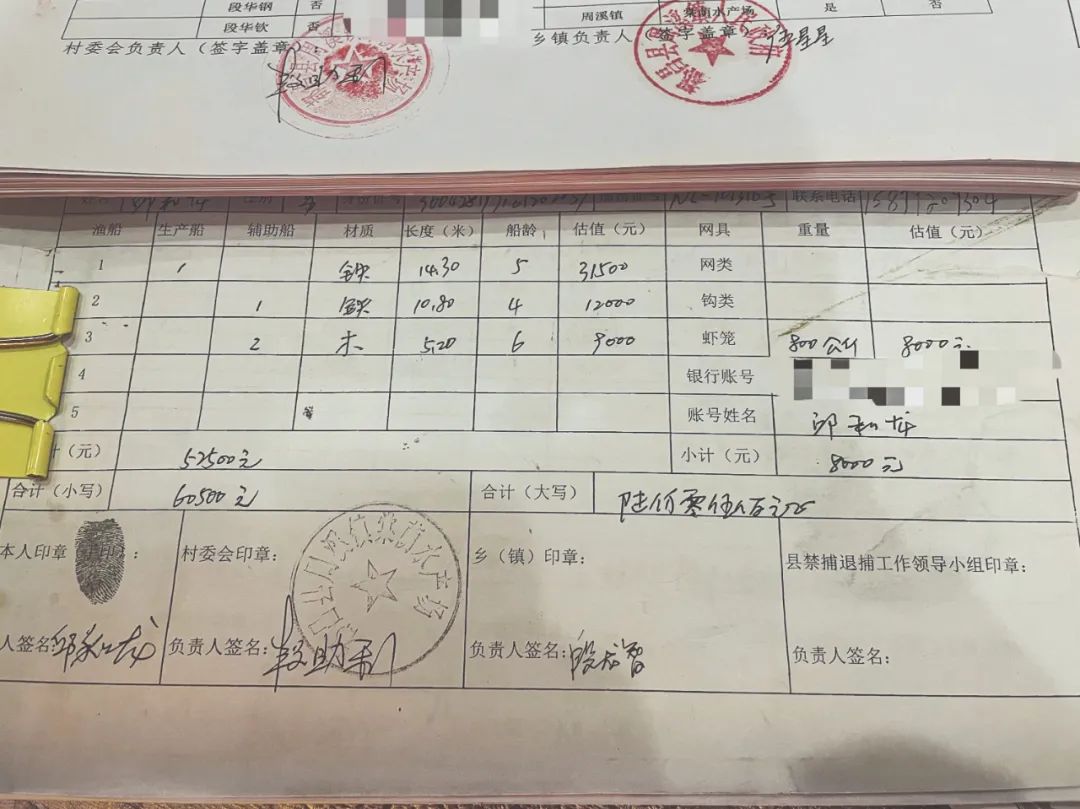 段华钢 否
段华钦 否
周溪镇 柴南水产场 是 否
村委会负责人（签字盖章）：
乡镇负责人（签字盖章）
联系电话
渔船 生产船 辅助船 材质 长度（米） 船龄 估值（元） 网具 重量 估值（元）
1 1 铁 14.30 5 31500 网类
2 1 铁 10.80 4 12000 钩类
3 2 木 5.20 6 9000 虾笼 800公斤 8000元
4 银行账号
5 账号姓名 邱和龙
（元） 52500元 小计（元） 8000元
合计（小写） 60500元 合计（大写） 陆万零伍佰元
本人印章（手印）： 村委会印章： 乡（镇）印章： 县禁捕退捕工作领导小组印章：
人签名：邱和龙 负责人签名：段助利 负责人签名：段龙智 负责人签名：